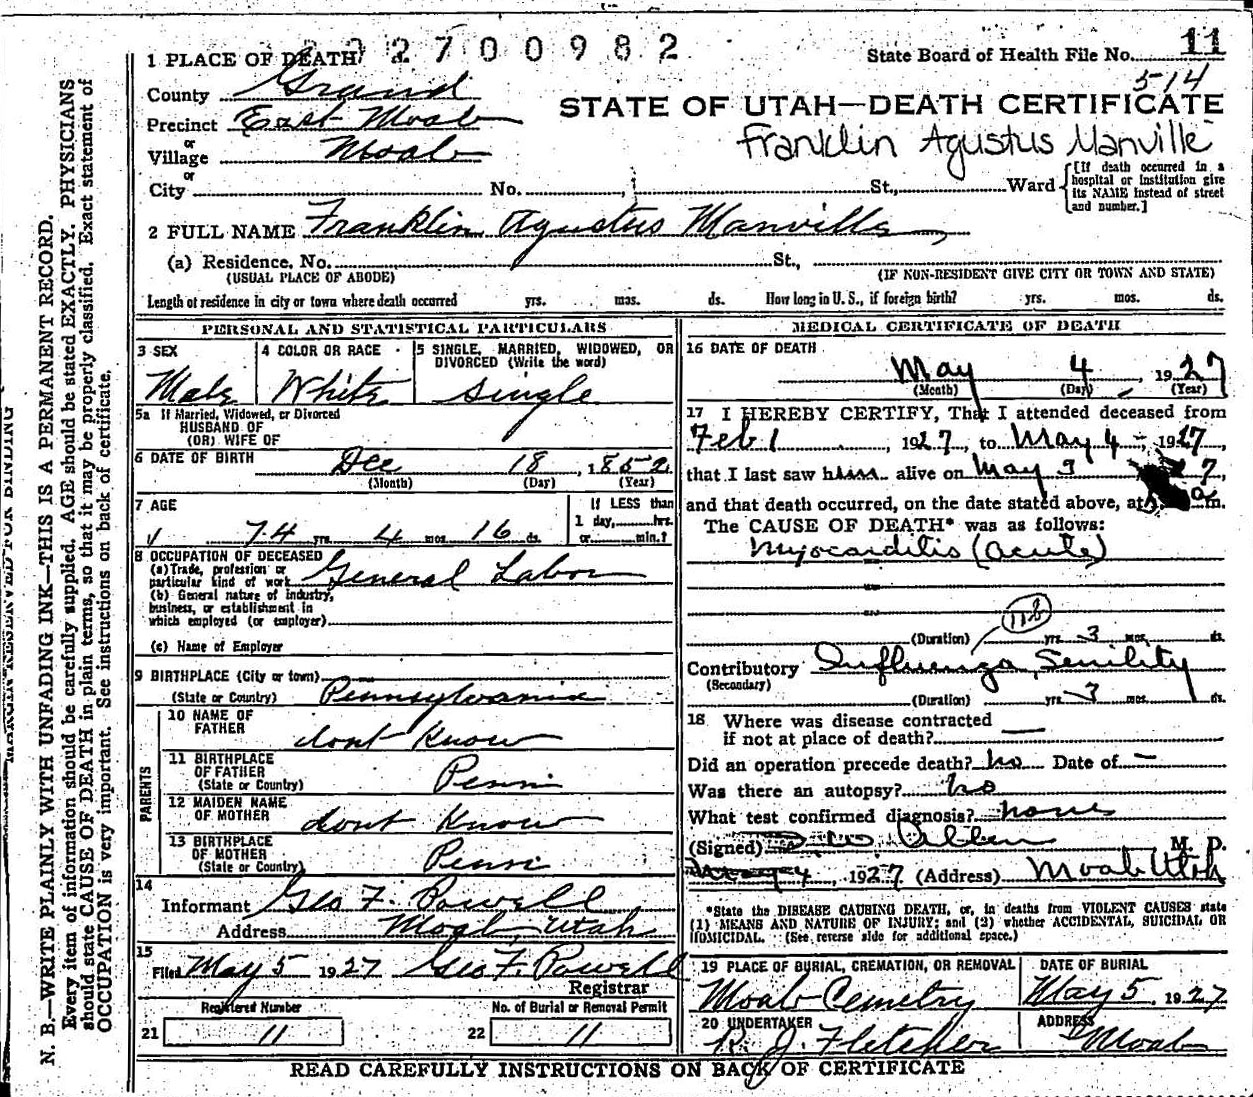 2700982
1 PLACE OF DEATH
State Board of Health File No. 11
514
County Grand
STATE OF UTAH—DEATH CERTIFICATE
Precinct East Moab
Franklin Agustus Manville
or
Village Moab
or
City No. St., Ward
[If death occurred in a
hospital or institution give
its NAME instead of street
and number.]
2 FULL NAME Franklin Agustus Manville
(a) Residence, No. St.,
(USUAL PLACE OF ABODE) (IF NON-RESIDENT GIVE CITY OR TOWN AND STATE)
Length of residence in city or town where death occurred yrs. mos. ds. How long in U. S., if foreign birth? yrs. mos. ds.
PERSONAL AND STATISTICAL PARTICULARS
3 SEX
Male
4 COLOR OR RACE
White
5 SINGLE, MARRIED, WIDOWED, OR
DIVORCED (Write the word)
Single
5a If Married, Widowed, or Divorced
HUSBAND OF
(OR) WIFE OF
6 DATE OF BIRTH Dec 18, 1852
(Month) (Day) (Year)
7 AGE
74 yrs. 4 mos. 16 ds.
If LESS than
1 day, hrs.
or min.?
8 OCCUPATION OF DECEASED
(a) Trade, profession or
particular kind of work General Labor
(b) General nature of industry,
business, or establishment in
which employed (or employer)
(c) Name of Employer
9 BIRTHPLACE (City or town)
(State or Country) Pennsylvania
PARENTS
10 NAME OF
FATHER dont Know
11 BIRTHPLACE
OF FATHER
(State or Country) Penn
12 MAIDEN NAME
OF MOTHER dont Know
13 BIRTHPLACE
OF MOTHER
(State or Country) Penn
14
Informant Geo F. Powell
Address Moab, Utah
15
Filed May 5 1927 Geo F. Powell
Registrar
Registered Number
21 11
No. of Burial or Removal Permit
22 11
MEDICAL CERTIFICATE OF DEATH
16 DATE OF DEATH
May 4, 1927
(Month) (Day) (Year)
17 I HEREBY CERTIFY, That I attended deceased from
Feb 1, 1927, to May 4 - 1927,
that I last saw him alive on May 3 7,
and that death occurred, on the date stated above, at a m.
The CAUSE OF DEATH* was as follows:
Myocarditis (acute)
11b
(Duration) yrs. 3 mos. ds.
Contributory Influenza, Senility
(Secondary)
(Duration) yrs. 3 mos. ds.
18 Where was disease contracted
if not at place of death? —
Did an operation precede death? no Date of —
Was there an autopsy? no
What test confirmed diagnosis? none
(Signed) M. D.
May 4, 1927 (Address) Moab Utah
*State the DISEASE CAUSING DEATH, or, in deaths from VIOLENT CAUSES state
(1) MEANS AND NATURE OF INJURY; and (2) whether ACCIDENTAL, SUICIDAL OR
HOMICIDAL. (See reverse side for additional space.)
19 PLACE OF BURIAL, CREMATION, OR REMOVAL
Moab Cemetry
DATE OF BURIAL
May 5, 1927
20 UNDERTAKER
R. J. Fletcher
ADDRESS
Moab
READ CAREFULLY INSTRUCTIONS ON BACK OF CERTIFICATE
MARGIN RESERVED FOR BINDING
N. B.—WRITE PLAINLY WITH UNFADING INK—THIS IS A PERMANENT RECORD.
Every item of information should be carefully supplied. AGE should be stated EXACTLY. PHYSICIANS
should state CAUSE OF DEATH in plain terms, so that it may be properly classified. Exact statement of
OCCUPATION is very important. See instructions on back of certificate.